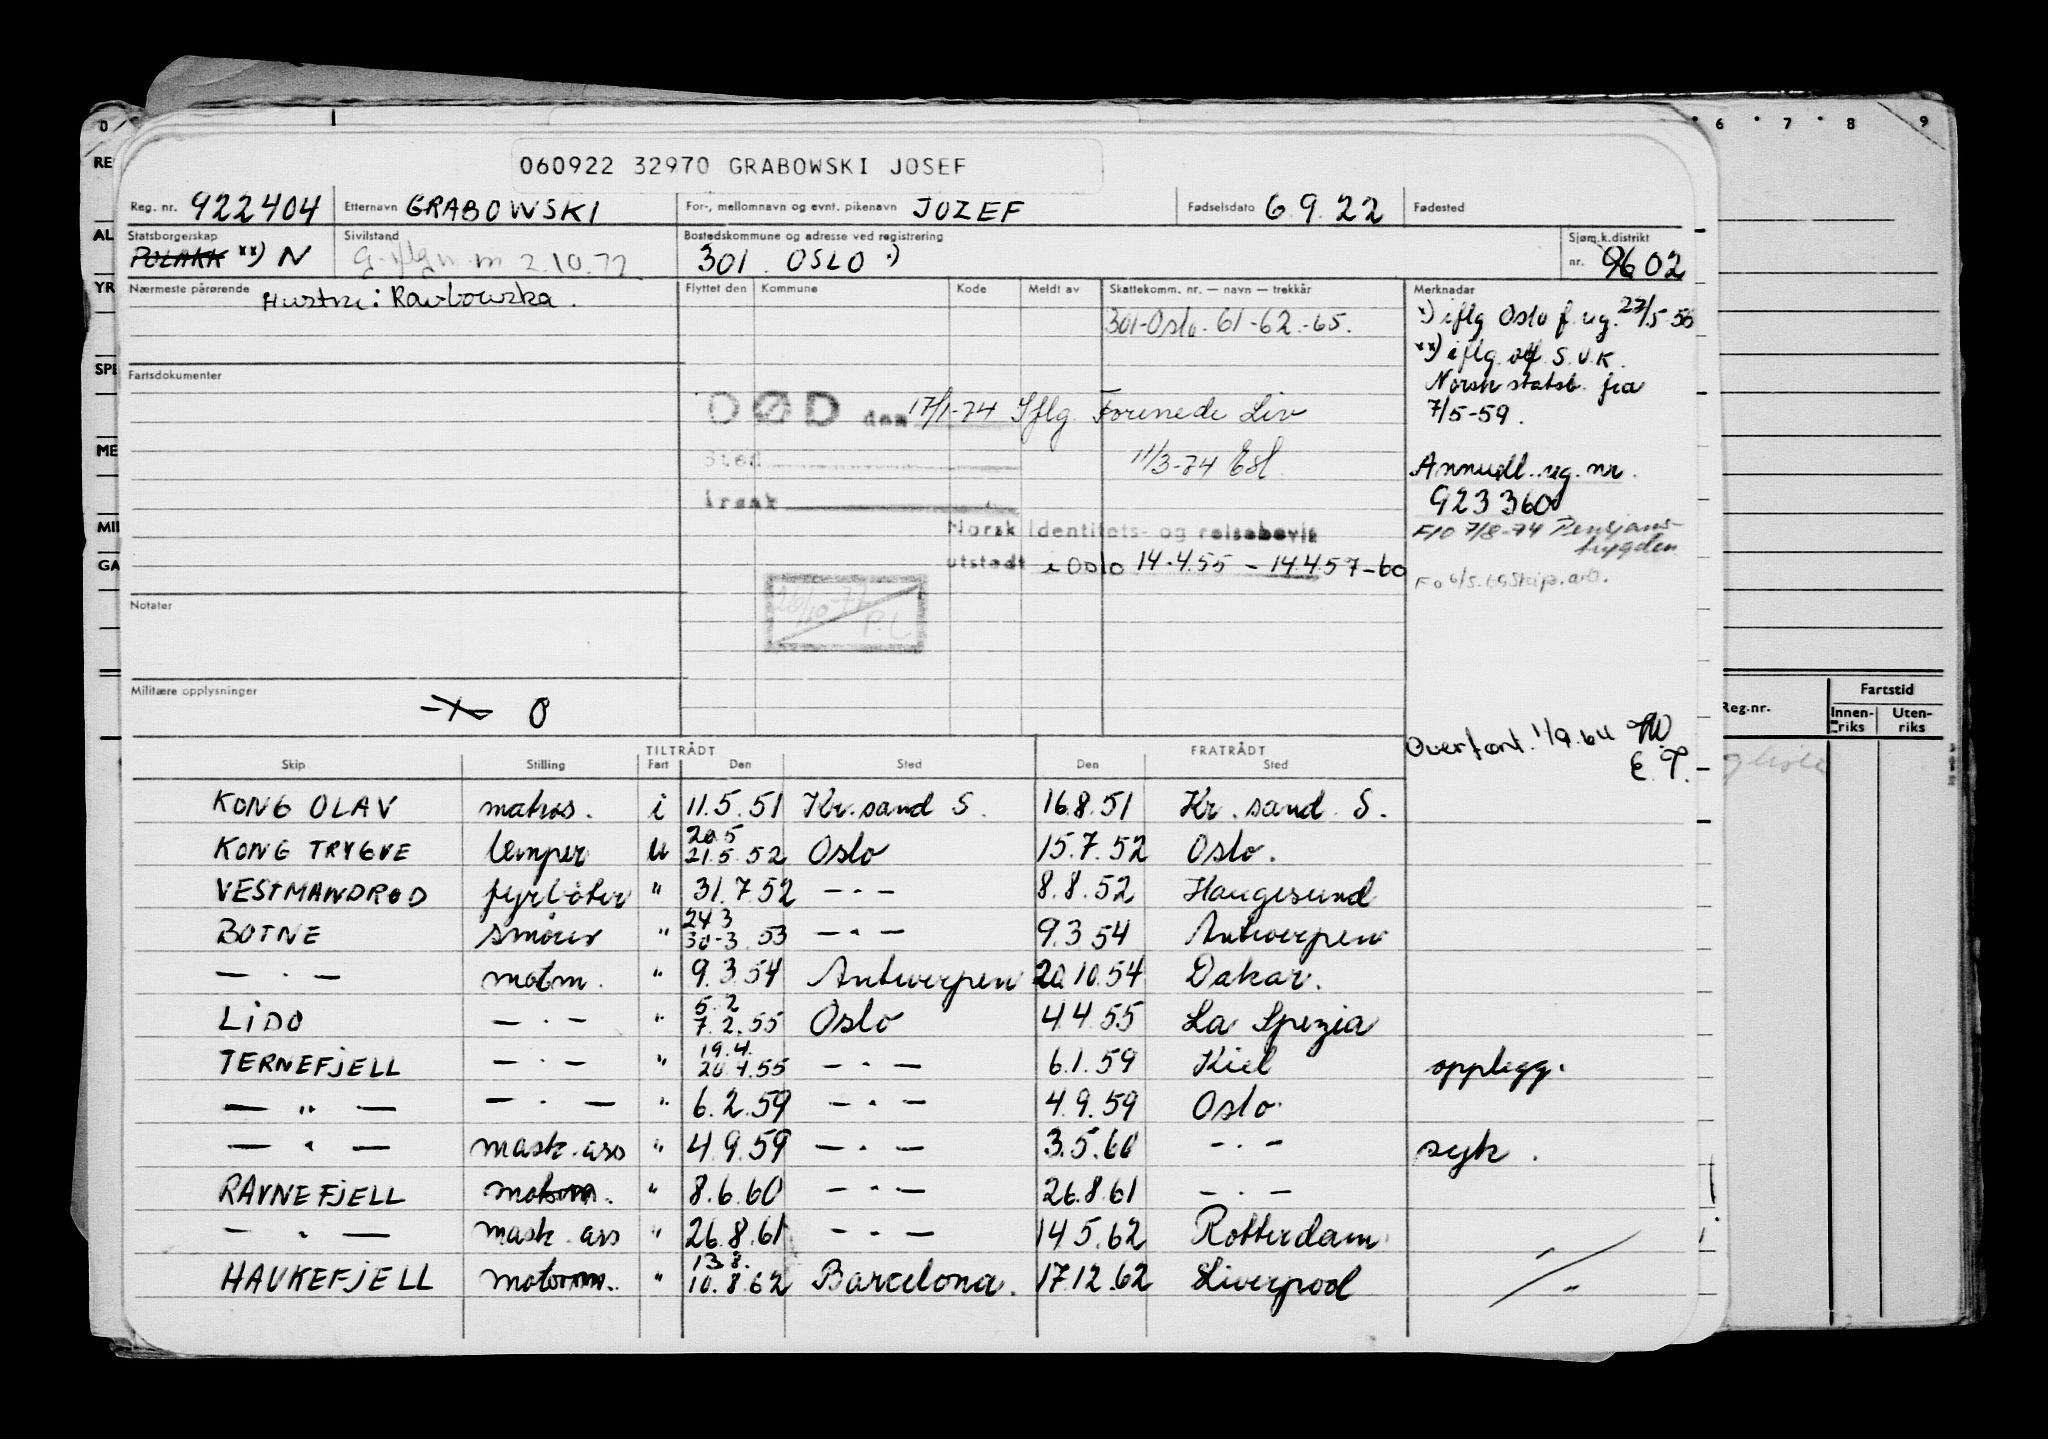 060922 32970 GRABOWSKI JOSEF
Reg. nr. 922404 Etternavn GRABOWSKI For-, mellomnavn og evnt. pikenavn JOZEF Fødselsdato 6.9.22 Fødested
Statsborgerskap POLAKK **) N Sivilstand 2.10.72 Bostedskommune og adresse ved registrering 301 OSLO *) Sjøm.k.distrikt nr. 9602
Nærmeste pårørende Hustru: Flyttet den Kommune Kode Meldt av Skattekomm. nr. — navn — trekkår Merknader
301-Oslo. 61-62.-65.
*) iflg Oslo f.reg. 23/5-56
**) iflg. S.U.K.
Norsk statsb. fra
7/5-59.
Fartsdokumenter
DØD den 17/1-74 Iflg. Forenede Liv
Sted 11/3-74
årsak
Annull. reg. nr.
923360
F/O 7/8-74 Pensjons-
trygden
Norsk Identitets- og reisebevis
utstedt i Oslo 14.4.55 - 14.4.57-60
26/10-77
P.L
Notater
Militære opplysninger 0
Overført. 1/9.64
E.T.
TILTRÅDT FRATRÅDT
Skip Stilling Fart Den Sted Den Sted
KONG OLAV matros. i 11.5.51 Kr.sand S. 16.8.51 Kr. sand. S.
KONG TRYGVE lemper u 20.5 21.5.52 Oslo 15.7.52 Oslo.
VESTMANDRØD fyrbøter " 31.7.52 — · — 8.8.52 Haugesund
BOTNE smører " 24 3 30-3.53 — · — 9.3.54 Antwerpen
— · — motm. " 9.3.54 Antwerpen 20.10.54 Dakar.
LIDO — · — " 5.2 7.2.55 Oslo 4.4.55 La Spezia
TERNEFJELL — · — " 19.4. 20.4.55 — · — 6.1.59 Kiel opplegg.
— " — — · — " 6.2.59 — · — 4.9.59 Oslo
— " — mask.ass " 4.9.59 — · — 3.5.60 — · — syk.
RAVNEFJELL motorm. " 8.6.60 — · — 26.8.61 — · —
— · — mask. ass " 26.8.61 — · — 14.5.62 Rotterdam
HAUKEFJELL motorm. " 13.8. 10.8.62 Barcelona. 17.12.62 Liverpool
0 6 7 8 9
RE
AL
YR
SPE
ME
MIL
GA
Reg.nr. Fartstid
Innen-riks Uten-riks